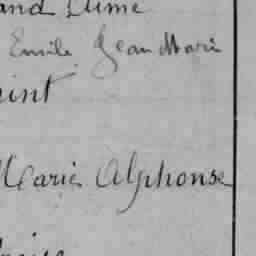 and Lume
Emile Jean Marie
int
Marie Alphonse